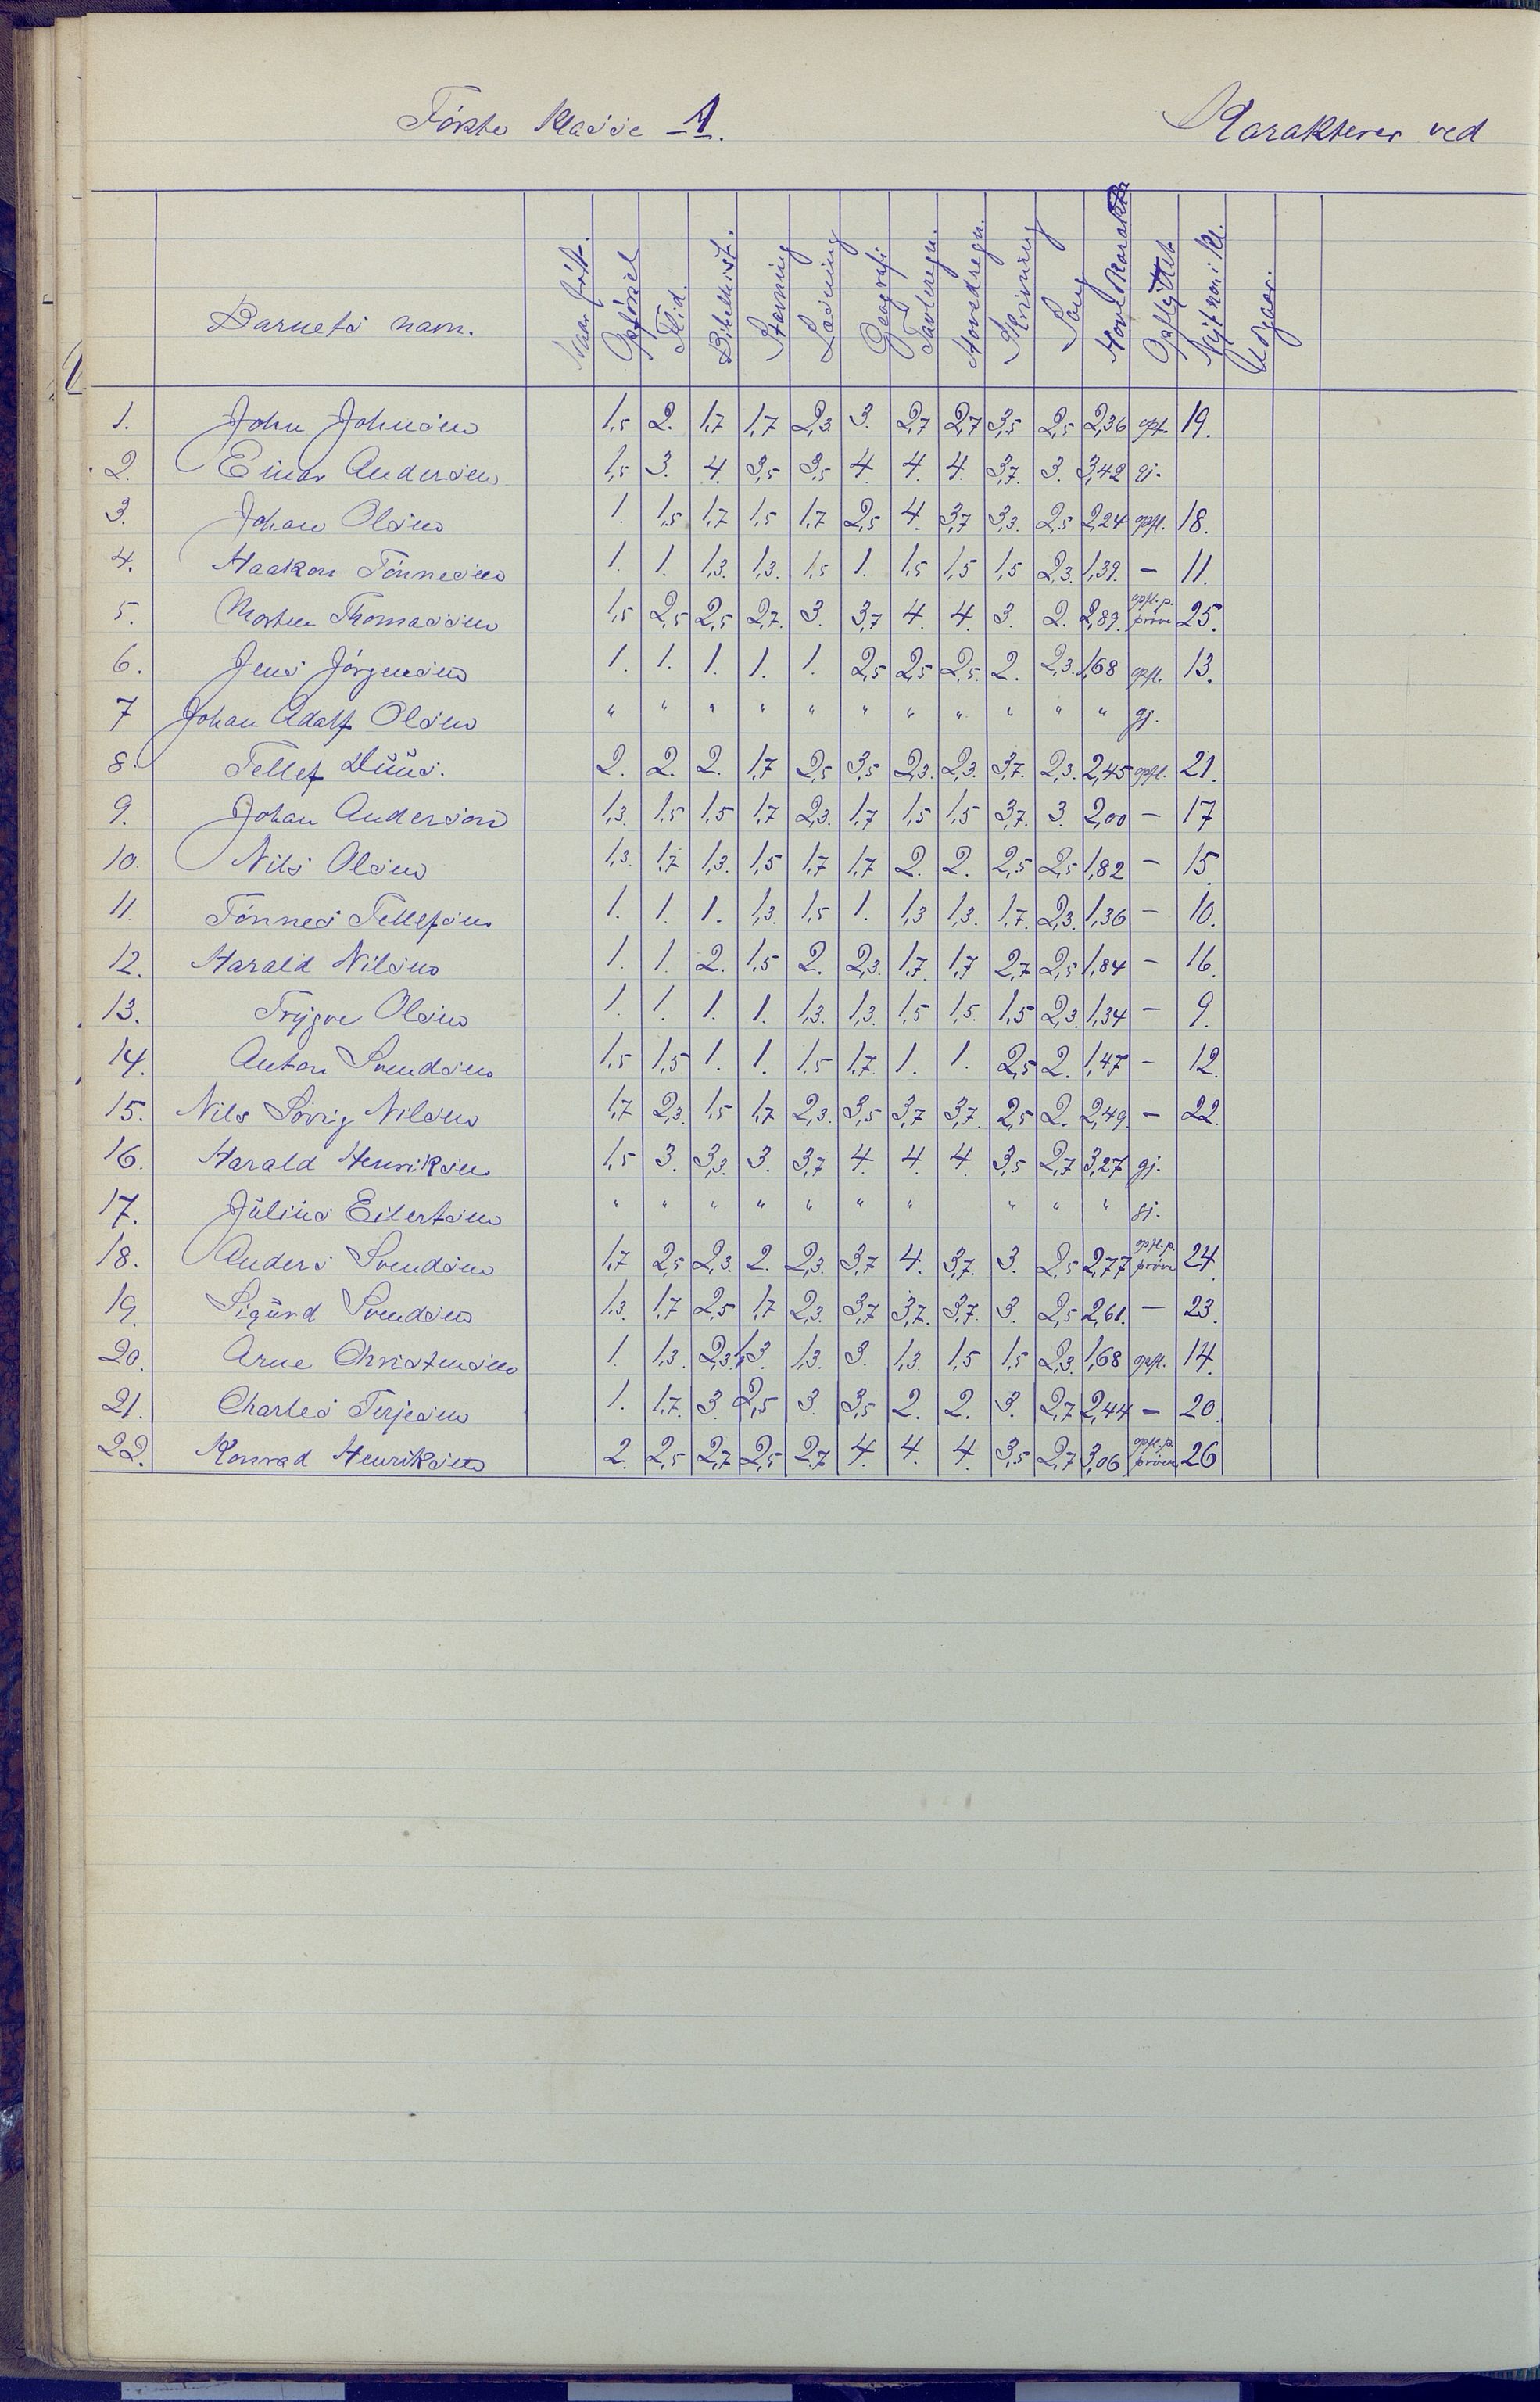 Förste Klasse 1. Karakterer ved
Barnets navn. Naar född. Opförsel Flid. Bibelhist. Stavning Læsning Geografi Tavleregn. Hovedregn. Skrivning Sang Hovedkarakter Opflyttet Nyt no. i kl. Udgaar.
1. John Johnsen 1,5 2. 1,7 1,7 2,3 3. 2,7 2,7 3,5 2,5 2,36 opf. 19.
2. Einar Andersen 1,5 3. 4. 3,5 3,5 4. 4. 4. 3,7. 3. 3,42 gj.
3. Johan Olsen 1. 1,5 1,7 1,5 1,7 2,5 4. 3,7 3,3. 2,5 2,24 opfl. 18.
4. Haakon Tönnesen 1. 1. 1,3. 1,3. 1,5 1. 1,5 1,5 1,5 2,3. 1,39. — 11.
5. Morten Thomassen 1,5 2,5 2,5 2,7. 3. 3,7 4. 4. 3. 2. 2,89. opfl. p. pröve 25.
6. Jens Jörgensen 1. 1. 1. 1. 1. 2,5 2,5 2,5. 2. 2,3. 1,68 opfl. 13.
7 Johan Adolf Olsen " " " " " " " " " " " gj.
8. Tellef Duus. 2. 2. 2. 1,7 2,5 3,5 2,3. 2,3. 3,7. 2,3. 2,45 opfl. 21.
9. Johan Anderson 1,3. 1,5 1,5 1,7 2,3. 1,7 1,5 1,5 3,7. 3. 2,00 — 17
10. Nils Olsen 1,3. 1,7 1,3. 1,5 1,7 1,7 2. 2. 2,5 2,5 1,82 — 15.
11. Tönnes Tellefsen 1. 1. 1. 1,3. 1,5 1. 1,3 1,3. 1,7. 2,3. 1,36 — 10.
12. Harald Nilsen 1. 1. 2. 1,5 2. 2,3. 1,7. 1,7 2,7 2,5 1,84 — 16.
13. Trygve Olsen 1. 1. 1. 1. 1,3. 1,3. 1,5 1,5. 1,5 2,3. 1,34 — 9.
14. Anton Svendsen 1,5 1,5 1. 1. 1,5 1,7. 1. 1. 2,5 2. 1,47 — 12.
15. Nils Sövig Nilsen 1,7 2,3. 1,5 1,7 2,3. 3,5 3,7 3,7. 2,5 2. 2,49. — 22.
16. Harald Henriksen 1,5 3. 3,3. 3. 3,7 4. 4. 4. 3,5 2,7 3,27 gj.
17. Julius Eilertsen " " " " " " " " " " gj.
18. Anders Svendsen 1,7 2,5 2,3. 2. 2,3. 3,7 4. 3,7. 3. 2,5 2,77 opfl. p. pröve 24
19. Sigurd Svendsen 1,3. 1,7 2,5 1,7 2,3. 3,7 3,7. 3,7. 3. 2,5 2,61. — 23.
20. Arne Christensen 1. 1,3. 2,3. 1,3. 1,3. 3. 1,3. 1,5 1,5 2,3. 1,68 opfl. 14.
21. Charles Terjesen 1. 1,7. 3. 2,5 3. 3,5 2. 2. 3. 2,7 2,44 — 20.
22. Konrad Henriksen 2. 2,5 2,7 2,5 2,7 4. 4. 4. 3,5 2,7 3,06 opfl. p. pröve 26